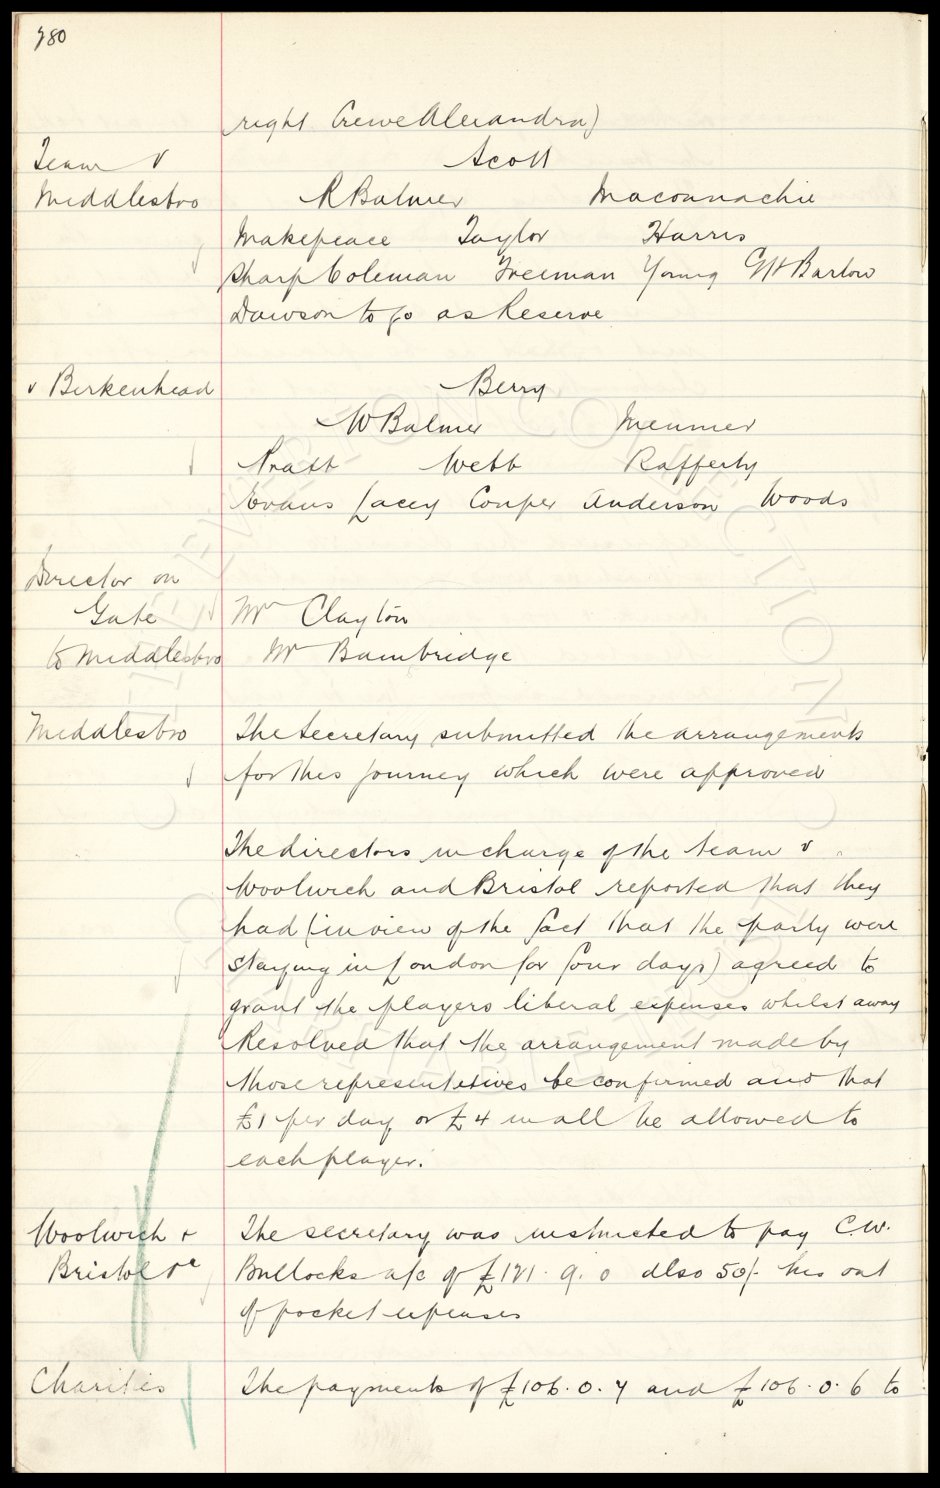 780
right Crewe Alexandra)
Team v Scott
Middlesbro R Balmer Maconnachie
Makepeace Taylor Harris
Sharp Coleman Freeman Young G H Barlow
Dawson to go as Reserve
v Birkenhead Berry
W Balmer Meunier
Pratt Webb Rafferty
Evans Lacey Couper Anderson Woods
Director on
Gate Mr Clayton
to Middlesbro Mr Bainbridge
Middlesbro The Secretary submitted the arrangements
for this journey which were approved
The directors in charge of the team v
Woolwich and Bristol reported that they
had (in view of the fact that the party were
staying in London for four days) agreed to
grant the players liberal expenses whilst away
Resolved that the arrangement made by
those representatives be confirmed and that
£1 per day or £4 in all be allowed to
each player.
Woolwich + The secretary was instructed to pay C.W.
Bristol Bullocks a/c of £121. 9. 0 also 50/- his out
of pocket expenses
Charities The payments of £106. 0. 7 and £106. 0. 6 to